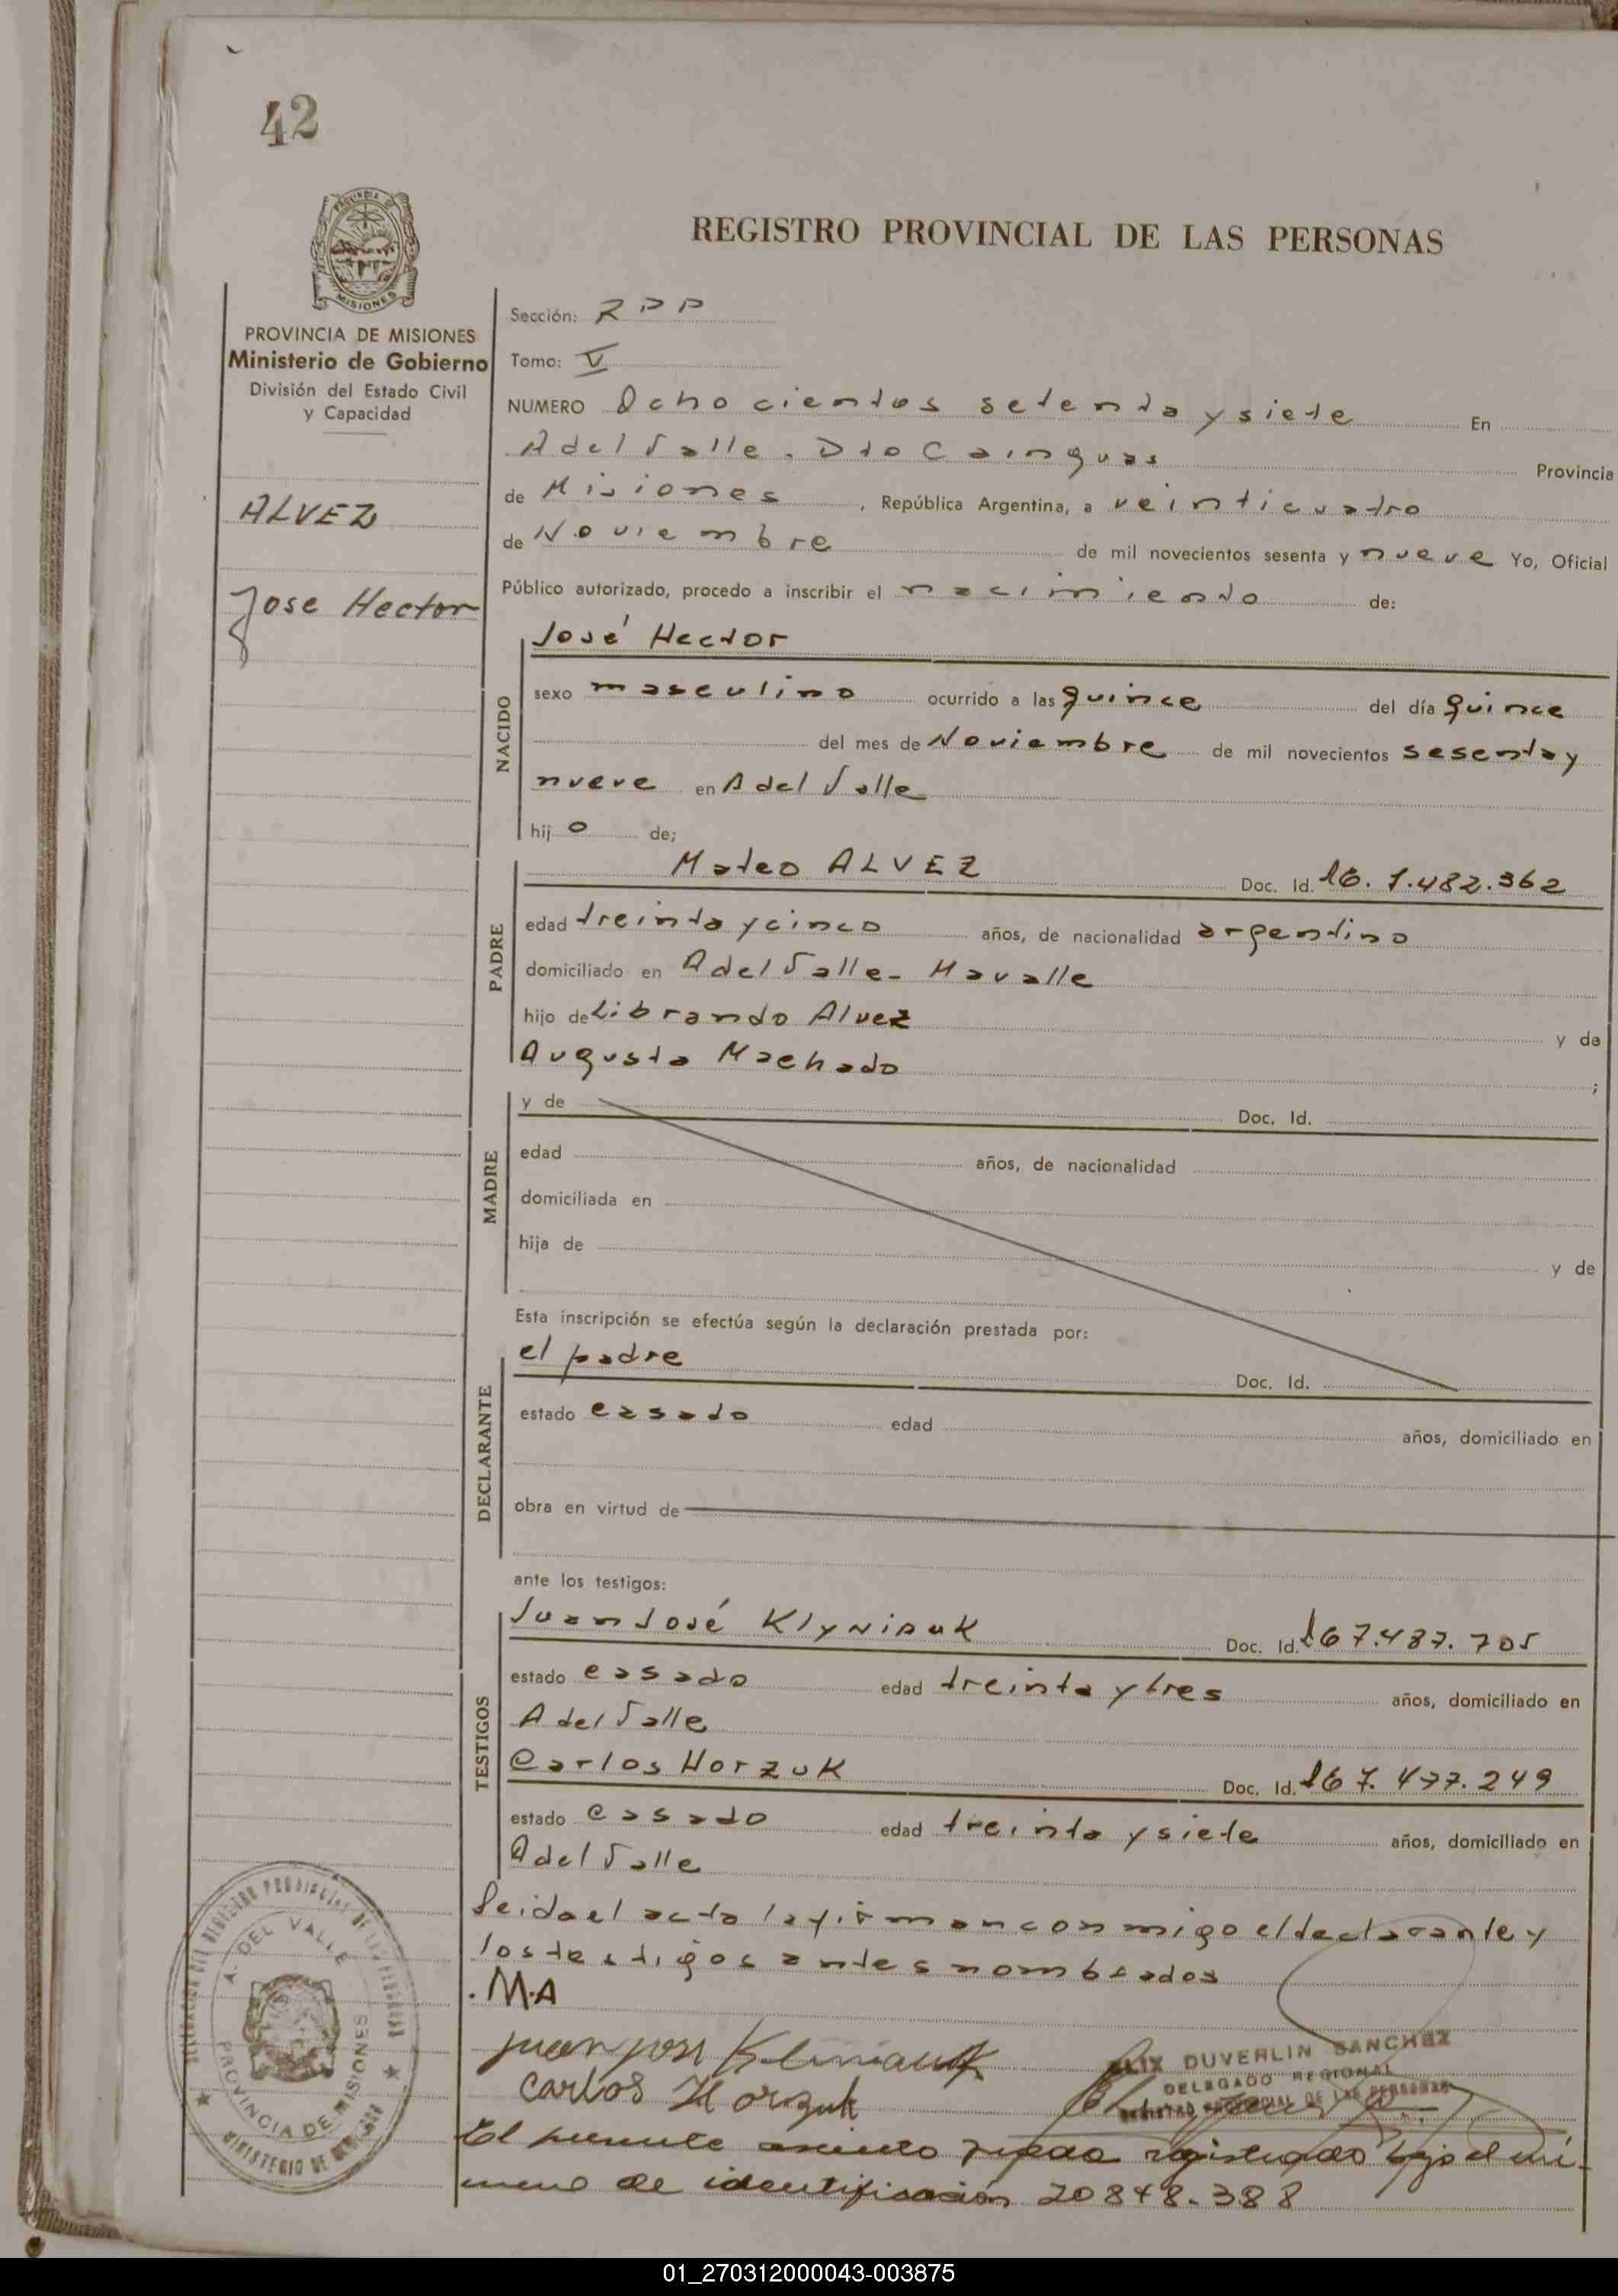 42
PROVINCIA DE MISIONES
Ministerio de Gobierno
División del Estado Civil
y Capacidad
ALVEZ
Jose Hector
REGISTRO PROVINCIAL DE LAS PERSONAS
Sección: RPP
Tomo: V
NUMERO Ocho cientos setenta y siete En
A del Valle. Dto Cainguas Provincia
de Misiones, República Argentina, a veinticuatro
de Noviembre de mil novecientos sesenta y nueve Yo, Oficial
Público autorizado, procedo a inscribir el nacimiento de:
NACIDO
José Hector
sexo masculino ocurrido a las quince del día quince
del mes de Noviembre de mil novecientos sesenta y
nueve en A del Valle
hijo de;
PADRE
Mateo ALVEZ Doc. Id. 7.482.362
edad treinta y cinco años, de nacionalidad argentino
domiciliado en A del Valle - Mavalle
hijo de Librando Alvez y de
Augusta Machado ;
MADRE
y de Doc. Id.
edad años, de nacionalidad
domiciliada en
hija de y de
Esta inscripción se efectúa según la declaración prestada por:
DECLARANTE
el padre Doc. Id.
estado casado edad años, domiciliado en
obra en virtud de
ante los testigos:
TESTIGOS
Juan José Klyniauk Doc. Id. 7.487.705
estado casado edad treinta y tres años, domiciliado en
A del Valle
Carlos Horzuk Doc. Id. 7.477.249
estado casado edad treinta y siete años, domiciliado en
A del Valle
Leida el acta la firman con migo el declarante y
los testigos antes nombrados
. M.A
Juan José Kliniauk
Carlos Horzuk
DUVERLIN SANCHEZ
DELEGADO REGIONAL
REGISTRO PROVINCIAL DE LAS PERSONAS
El presente asiento queda registrado bajo el nú-
mero de identificación 20848.388
DELEGACION DEL REGISTRO PROVINCIAL DE LAS PERSONAS
A. DEL VALLE
PROVINCIA DE MISIONES
MINISTERIO DE GOBIERNO
01_270312000043-003875